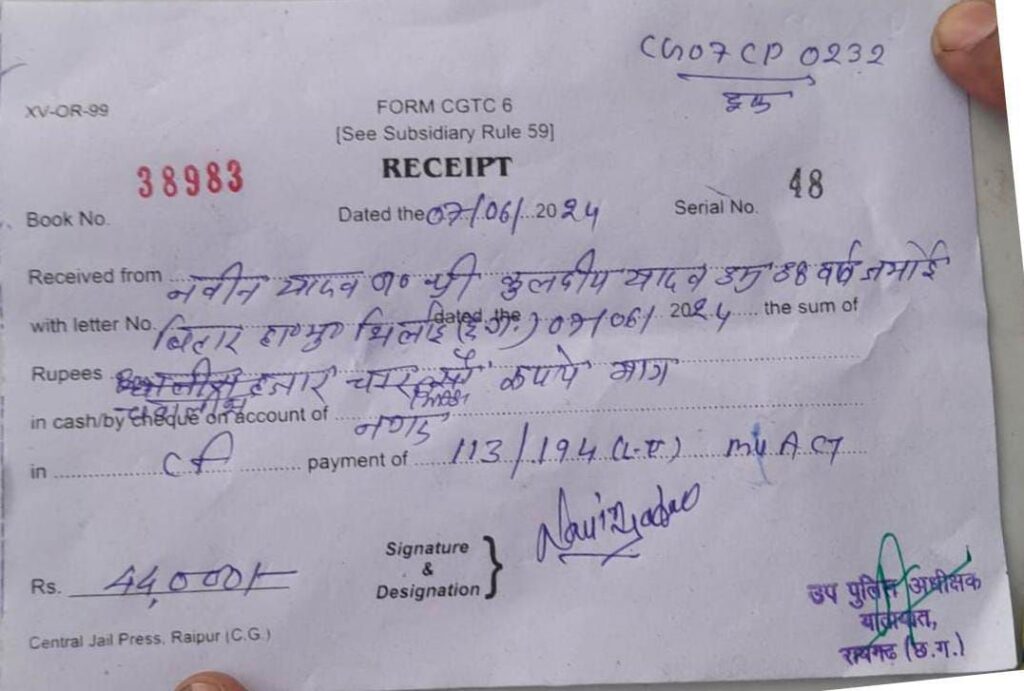 CG07 CP 0232
ट्रक
XV-OR-99
FORM CGTC 6
[See Subsidiary Rule 59]
RECEIPT
38983
48
Book No.
Dated the 07/06/ 2024
Serial No.
Received from नवीन यादव श्री कुलदीप यादव उम्र 38 वर्ष
with letter No. भिलाई dated the 07/06/ 2024 the sum of
Rupees हजार रूपये मात्र
in cash/by cheque on account of नगद
in payment of 113/194 MV ACT
Navin Yadav
Signature
&
Designation
Rs. 44,000/-
उप पुलिस अधीक्षक
यातायात,
रायगढ़ (छ.ग.)
Central Jail Press, Raipur (C.G.)